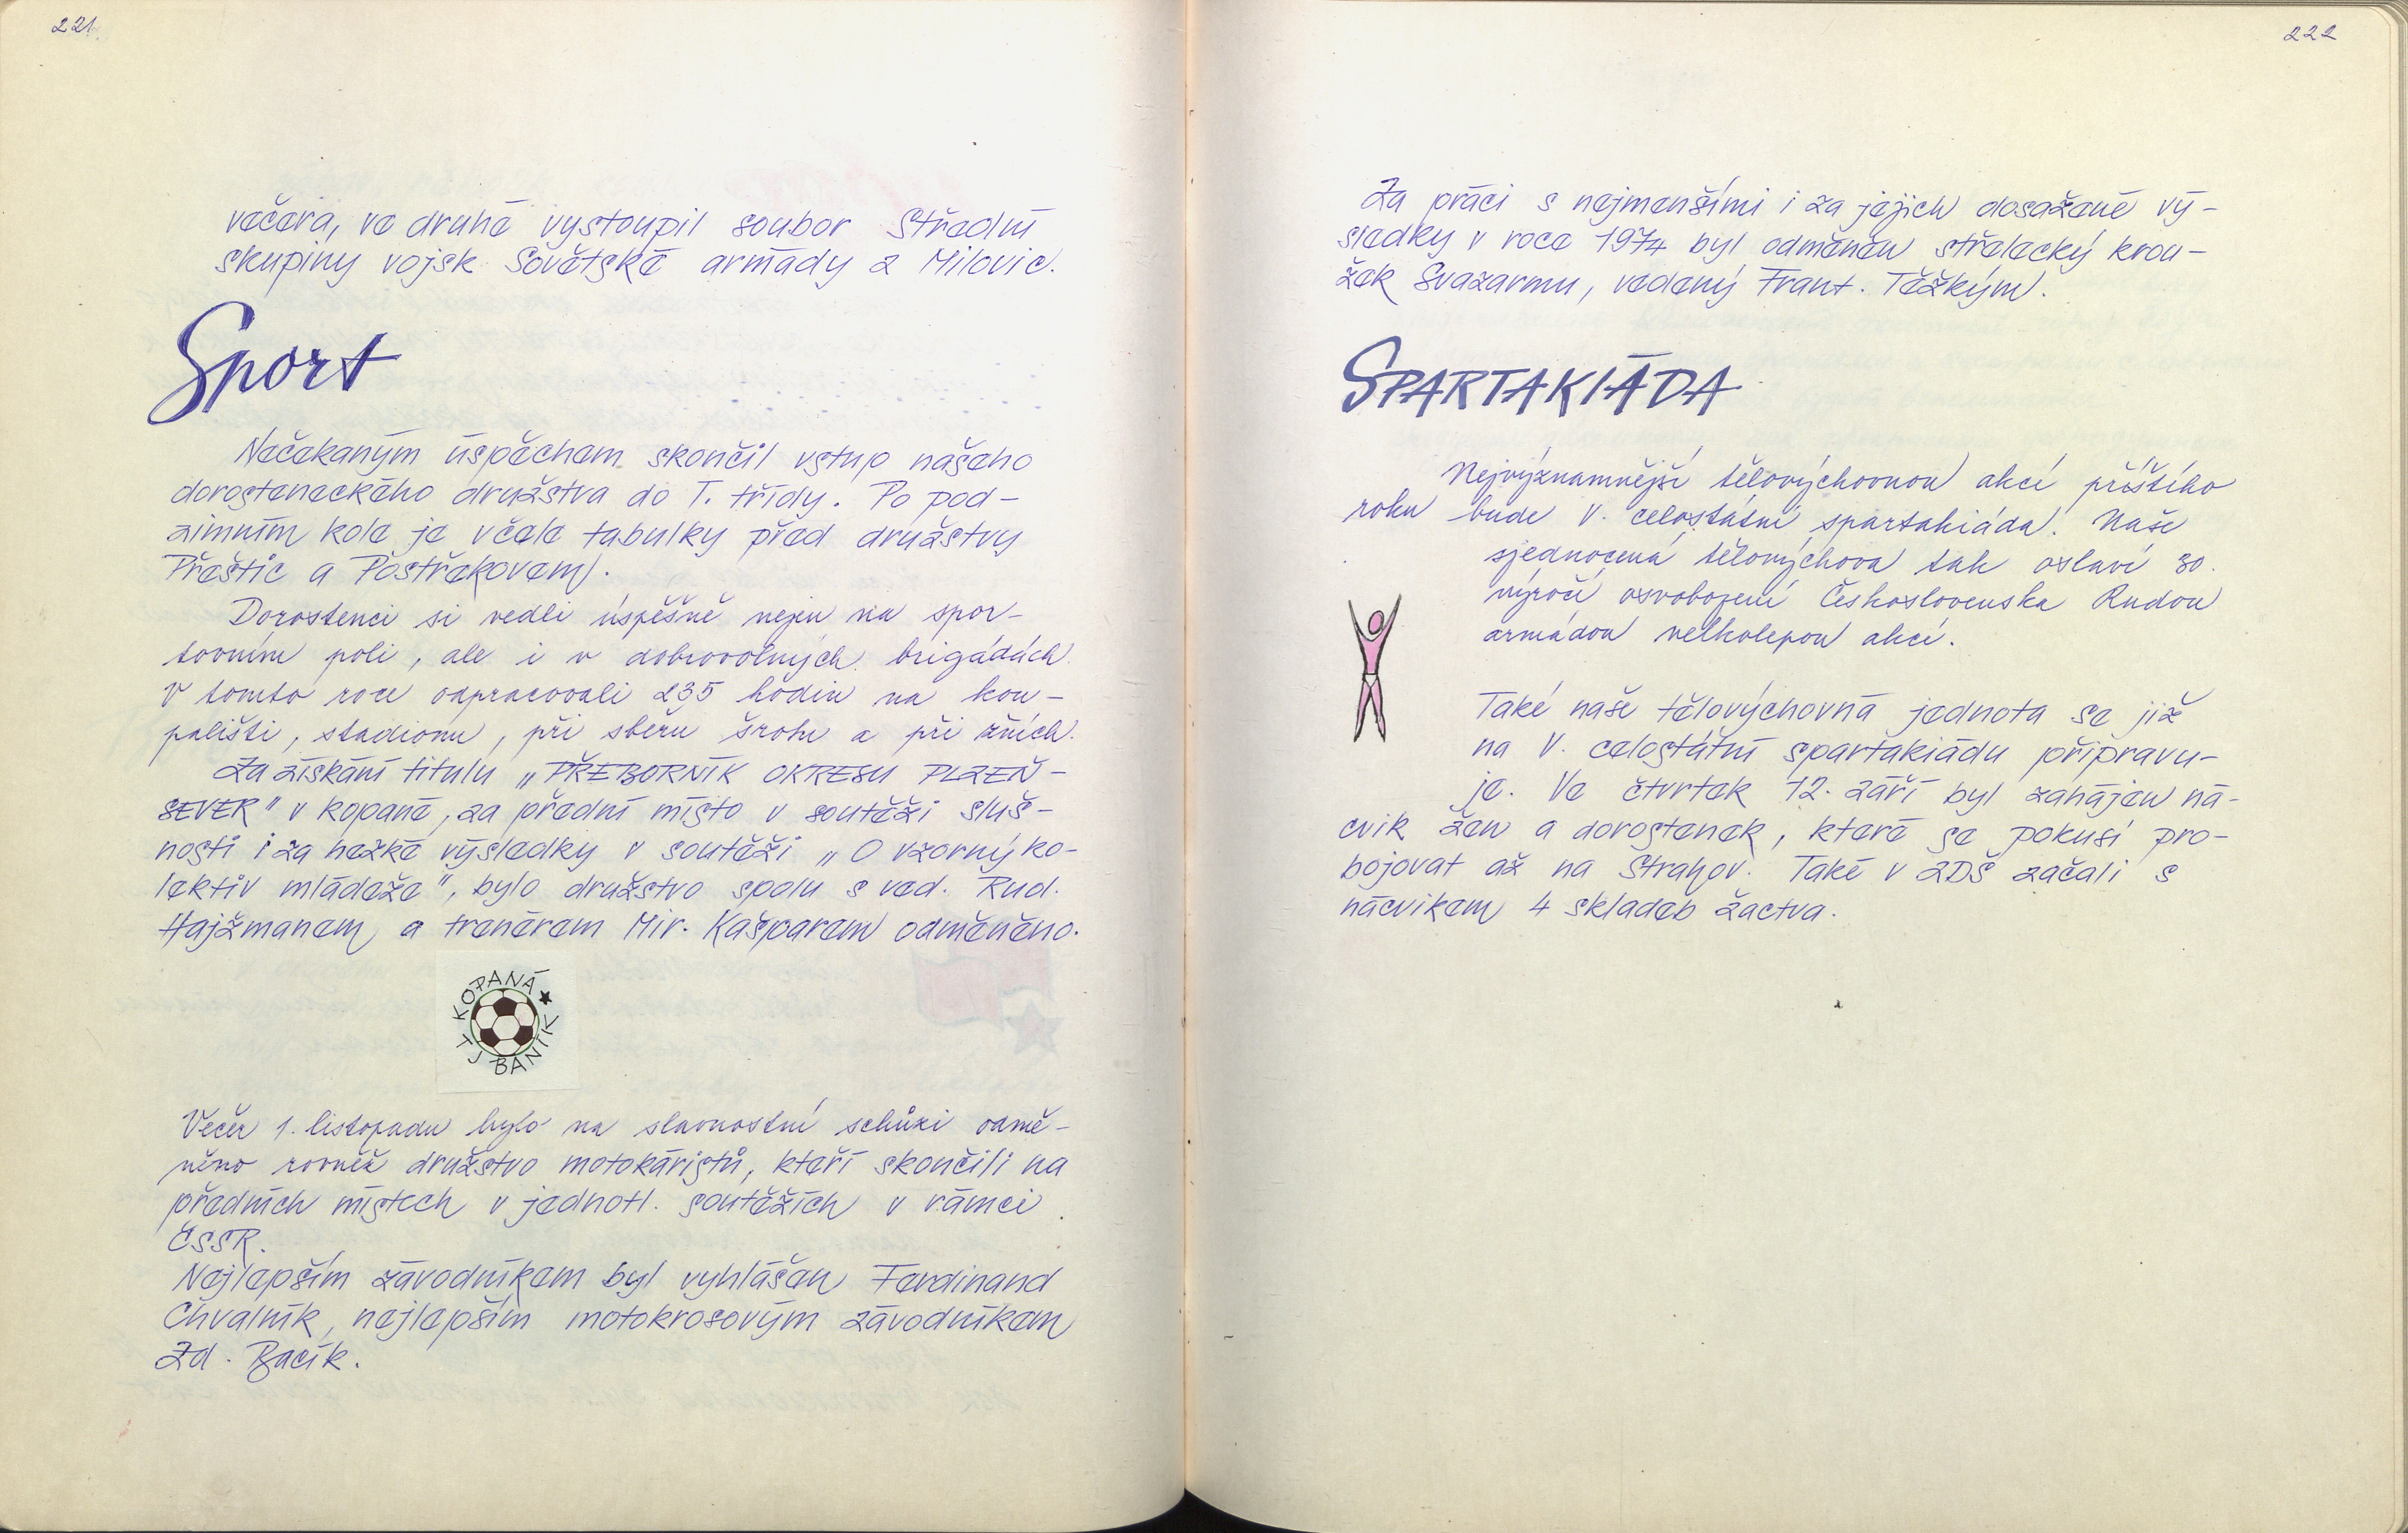 221
večera, ve druhé vystoupil soubor Střední
skupiny vojsk Sovětské armády z Milovic.
Sport
Nečekaným úspěchem skončil vstup našeho
dorosteneckého družstva do I. třídy. Po pod-
zimním kole je v čele tabulky před družstvy
Přeštic a Postřekovem.
Dorostenci si vedli úspěšně nejen na spor-
tovním poli, ale i v dobrovolných brigádách.
V tomto roce odpracovali 235 hodin na kou-
pališti, stadionu, při sběru šrotu a při žních.
Za získání titulu „PŘEBORNÍK OKRESU PLZEŇ-
SEVER" v kopané, za přední místo v soutěži sluš-
nosti i za hezké výsledky v soutěži „O vzorný ko-
lektiv mládeže", bylo družstvo spolu s ved. Rud.
Hajžmanem a trenérem Mir. Kašparem odměněno.
KOPANÁ
TJ BANÍK
Večer 1. listopadu bylo na slavnostní schůzi odmě-
něno rovněž družstvo motokáristů, kteří skončili na
předních místech v jednotl. soutěžích v rámci
ČSSR.
Nejlepším závodníkem byl vyhlášen Ferdinand
Chvalník, nejlepším motokrosovým závodníkem
Zd. Bacík.
222
Za práci s nejmenšími i za jejich dosažené vý-
sledky v roce 1974 byl odměněn střelecký krou-
žek Svazarmu, vedený Frant. Těžkým.
SPARTAKIÁDA
Nejvýznamnější tělovýchovnou akcí příštího
roku bude V. celostátní spartakiáda. Naše
sjednocená tělovýchova tak oslaví 30.
výročí osvobození Československa Rudou
armádou velkolepou akcí.
Také naše tělovýchovná jednota se již
na V. celostátní spartakiádu připravu-
je. Ve čtvrtek 12. září byl zahájen ná-
cvik žen a dorostenek, které se pokusí pro-
bojovat až na Strahov. Také v ZDŠ začali s
nácvikem 4 skladeb žactva.